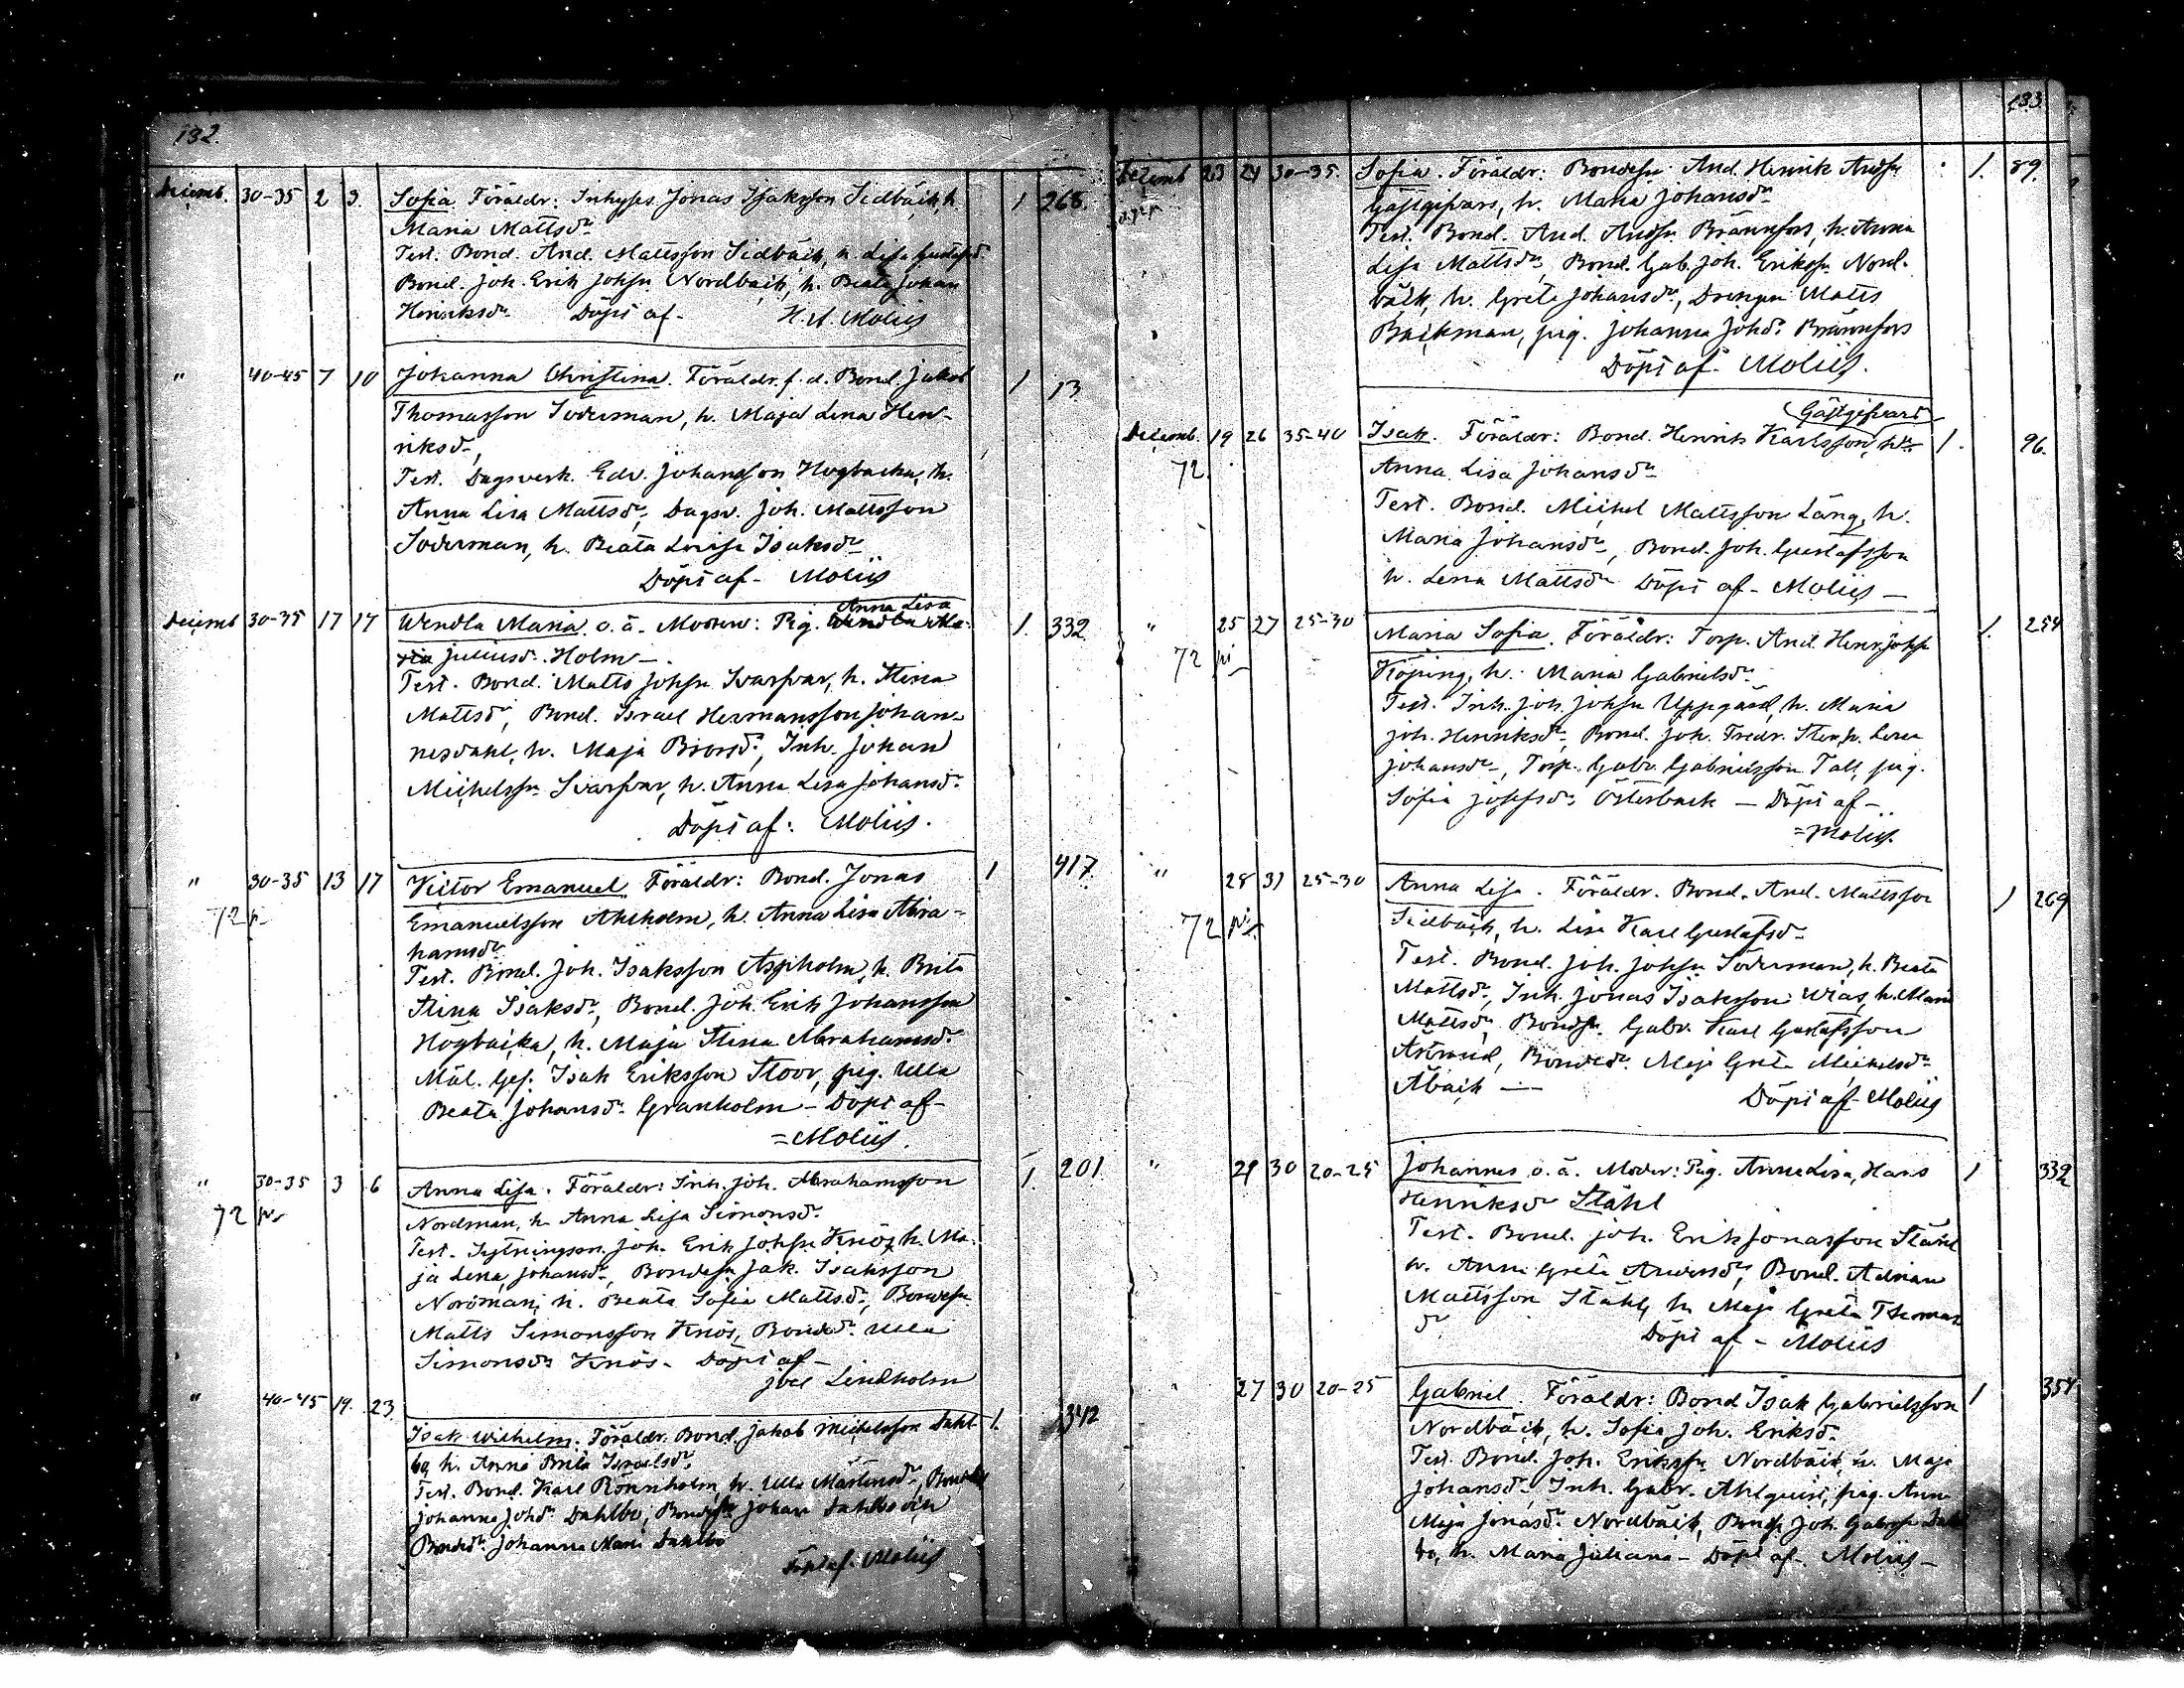 132.
Decemb. 30-35 2 3. Sofia. Föräldr: Inhyses. Jonas Isaksson Sidbäck, h. 1 268.
Maria Mattsdr
Test. Bond. And. Mattsson Sidbäck, h. Lisa Gustafsd.
Bond. Joh. Erik Johsn Nordbäck, h. Beata Johan
Henriksdr Döpt af - H. A. Moliis
" 40-45 7 10 Johanna Christina. Föräldr. f.d. Bond. Jakob 1 13
Thomasson Söderman, h. Maja Lena Hen-
riksd.
Test. Dagsverk. Edv. Johansson Högbacka, h.
Anna Lisa Mattsdr, Dagsv. Joh. Mattsson
Söderman, h. Beata Lovisa Isaksdr
Döpt af - Moliis
Anna Lisa
Decemb 30-35 17 17 Wendla Maria o.ä. Moder: Pig. Wendla Ma- 1. 332
ria Juliusdr Holm -
Test. Bond. Matts Johsn Svarfvar, h. Stina
Mattsdr, Bond. Israel Hermansson Johan-
nesdahl, h. Maja Brorsdr, Inh. Johan
Michelssn Svarfvar, h. Anna Lisa Johansdr
Döpt af: Moliis.
" 30-35 13 17 Victor Emanuel Föräldr: Bond. Jonas 1 417
72 Emanuelsson Ahlholm, h. Anna Lisa Abra-
hamsdr
Test. Bond. Joh. Isaksson Aspholm, h. Brita
Stina Isaksdr, Bond. Joh. Erik Johansson
Högbacka, h. Maja Stina Abrahamsdr
Mål. Ges. Isak Eriksson Stoor, pig. Ulla
Beata Johansdr Granholm - Döpt af -
=Moliis.
" 30-35 3 6 Anna Lisa. Föräldr: Inh. Joh. Abrahamsson 1. 201.
72 Nordman, h. Anna Lisa Simonsdr
Test. Sytningsm. Joh. Erik Johsn Knös, h. Ma-
ja Lena Johansdr, Bondesn Jak. Isaksson
Nordman, h. Beata Sofia Mattsdr, Bondesn
Matts Simonsson Knös, Bonded. Ulla
Simonsdr Knös - Döpt af -
Joel Lindholm
" 40-45 19. 23 Isak Wilhelm. Föräldr. Bond. Jakob Michelsson Dahl- 1. 342
bo, h. Anna Brita Israelsdr
Test. Bond. Karl Rönnholm, h. Ulla Mårtensdr,
Johanna Johdr Dahlbo, Bondesn Johan Dahlbo och
Bondedr Johanna Maria Dahlbo
Döpt af. Moliis
133.
Decemb 23 24 30-35. Sofia. Föräldr: Bondesn And. Henrik Andsn 1. 89.
Gästgifvars, h. Maria Johansdr
Test. Bond. And. Andsn Brännfors, h. Anna
Lisa Mattsdr, Bond. Gab. Joh. Erikssn Nord-
bäck, h. Greta Johansdr, Drengen Matts
Backman, pig. Johanna Johdr Brännfors
Döpt af - Moliis.
Gästgifvars
Decemb. 19 26 35-40 Isak. Föräldr: Bond. Henrik Karlsson, h. 1. 96.
72 Anna Lisa Johansdr
Test. Bond. Michel Mattsson Lång, h.
Maria Johansdr, Bond. Joh. Gustafsson
h. Lena Mattsdr Döpt af - Moliis -
" 25 27 25-30 Maria Sofia. Föräldr: Torp. And. Henr. Johsn 1. 254
72 Köping, h. Maria Gabrielsdr
Test. Inh. Joh. Johsn Uppgård, h. Maria
Joh. Henriksdr, Bond. Joh. Fredr. Sten, h. Lena
Johansdr, Torp. Gabr. Gabrielsson Tall, pig.
Sofia Josefsdr Österback - Döpt af -
=Moliis.
" 28 31 25-30 Anna Lisa. Föräldr. Bond. And. Mattsson 1 269
72 Sidbäck, h. Lisa Karl Gustafsdr
Test. Bond. Joh. Johsn Söderman, h. Beata
Mattsdr, Inh. Jonas Isaksson Wias, h. Maria
Mattsdr, Bondsn Gabr. Karl Gustafsson
Åstrand, Bondedr Maja Greta Michelsdr
Åbäck - Döpt af - Moliis
" 29 30 20-25 Johannes o.ä. Moder: Pig. Anna Lisa, Hans 1 332
Henriksdr Ståhl
Test. Bond. Joh. Erik Jonasson Ståhl
h. Anna Greta Andersdr, Bond. Adrian
Mattsson Ståhl, h. Maja Greta Thomas
dr Döpt af - Moliis
" 27 30 20-25 Gabriel. Föräldr: Bond Isak Gabrielsson 1 354
Nordbäck, h. Sofia Joh. Eriksdr
Test. Bond. Joh. Erikssn Nordbäck, h. Maja
Johansdr, Inh. Gabr. Ahlquist, pig. Anna
Maja Jonasdr Nordbäck, Bondsn Joh. Gabrsn Dahl
bo, h. Maria Juliana - Döpt af - Moliis -